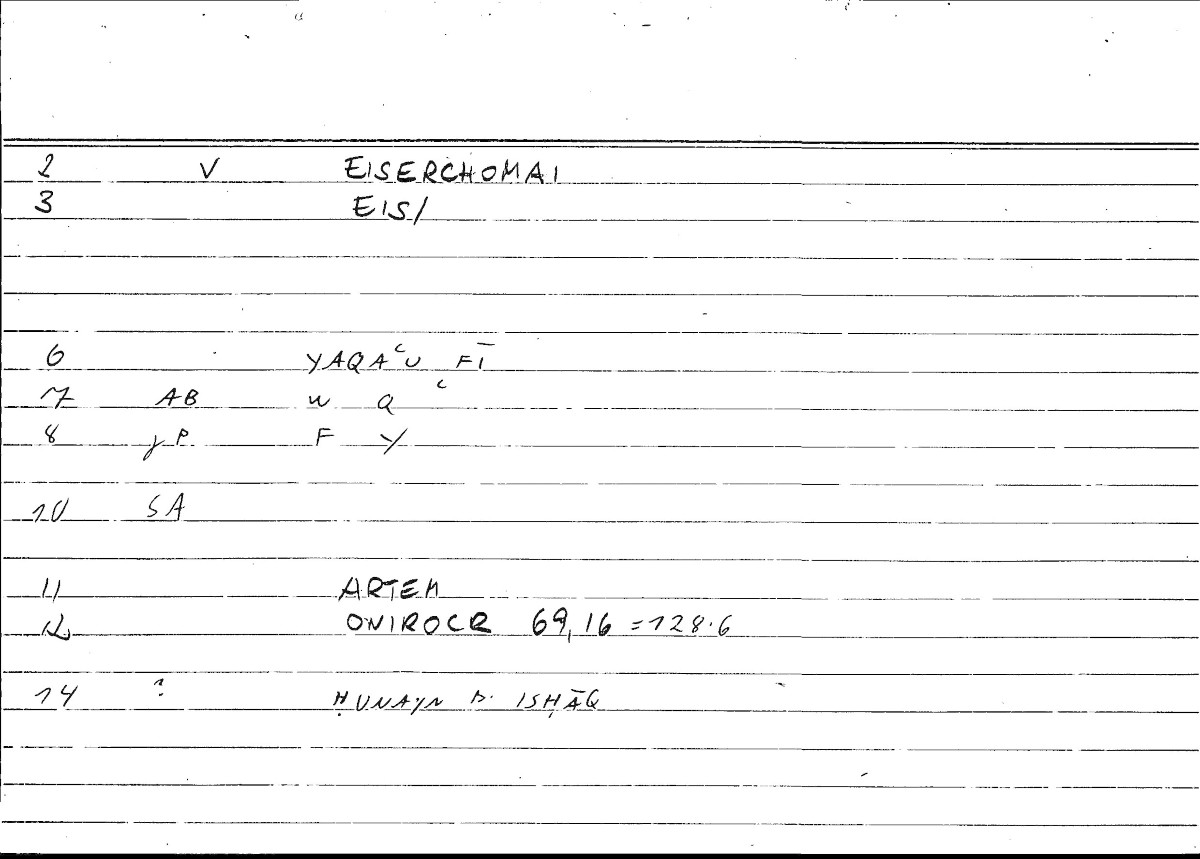 2 V EISERCHOMAI
3 EIS/
6 YAQAʿU FĪ
7 AB W Q ʿ
8 γP F Y
10 SA
11 ARTEM
12 ONIROCR 69,16 = 128.6
14 ? ḤUNAYN B. ISḤĀQ